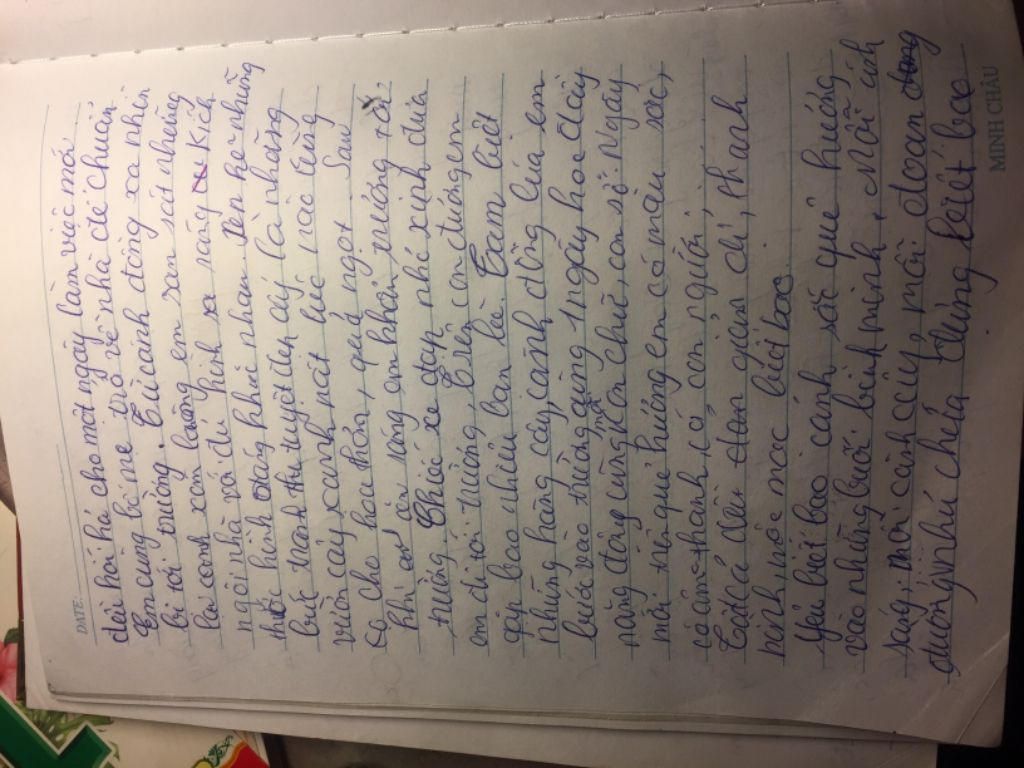 DATE:
dài hối hả cho một ngày làm việc mới.
Em cùng bố mẹ trở về nhà để chuẩn
bị tới trường. Từ cánh đồng xa nhìn
lại cảnh xóm làng em san sát những
ngôi nhà với đủ hình xa rằng kích
thước hình dáng khác nhau xen kẽ những
bức tranh thu tuyệt đẹp ấy là những
vườn cây xanh mát lúc nào cũng
cho hoa thơm, quả ngọt. Sau
khi ăn sáng em khăn trường tới
trường. Chiếc xe đạp nhỏ xinh đưa
em đi tới trường, trên con đường em
gặp bao nhiêu bạn bè. Tạm biệt
những hàng cây, cánh đồng lúa em
bước vào trường cùng 1 ngày học đầy
năng động cùng măn chữ, con số. Ngày
mới trên quê hương em có màu sắc,
có âm thanh, có con người,
Tất cả đều đơn giản dị, thanh
bình, mộc mạc biết bao
Yêu biết bao cảnh sắc quê hương
vào những buổi bình minh. Mỗi ánh
sáng, mỗi cành cây, mỗi đoạn
đường như chứa đựng biết bao
MINH CHÂU